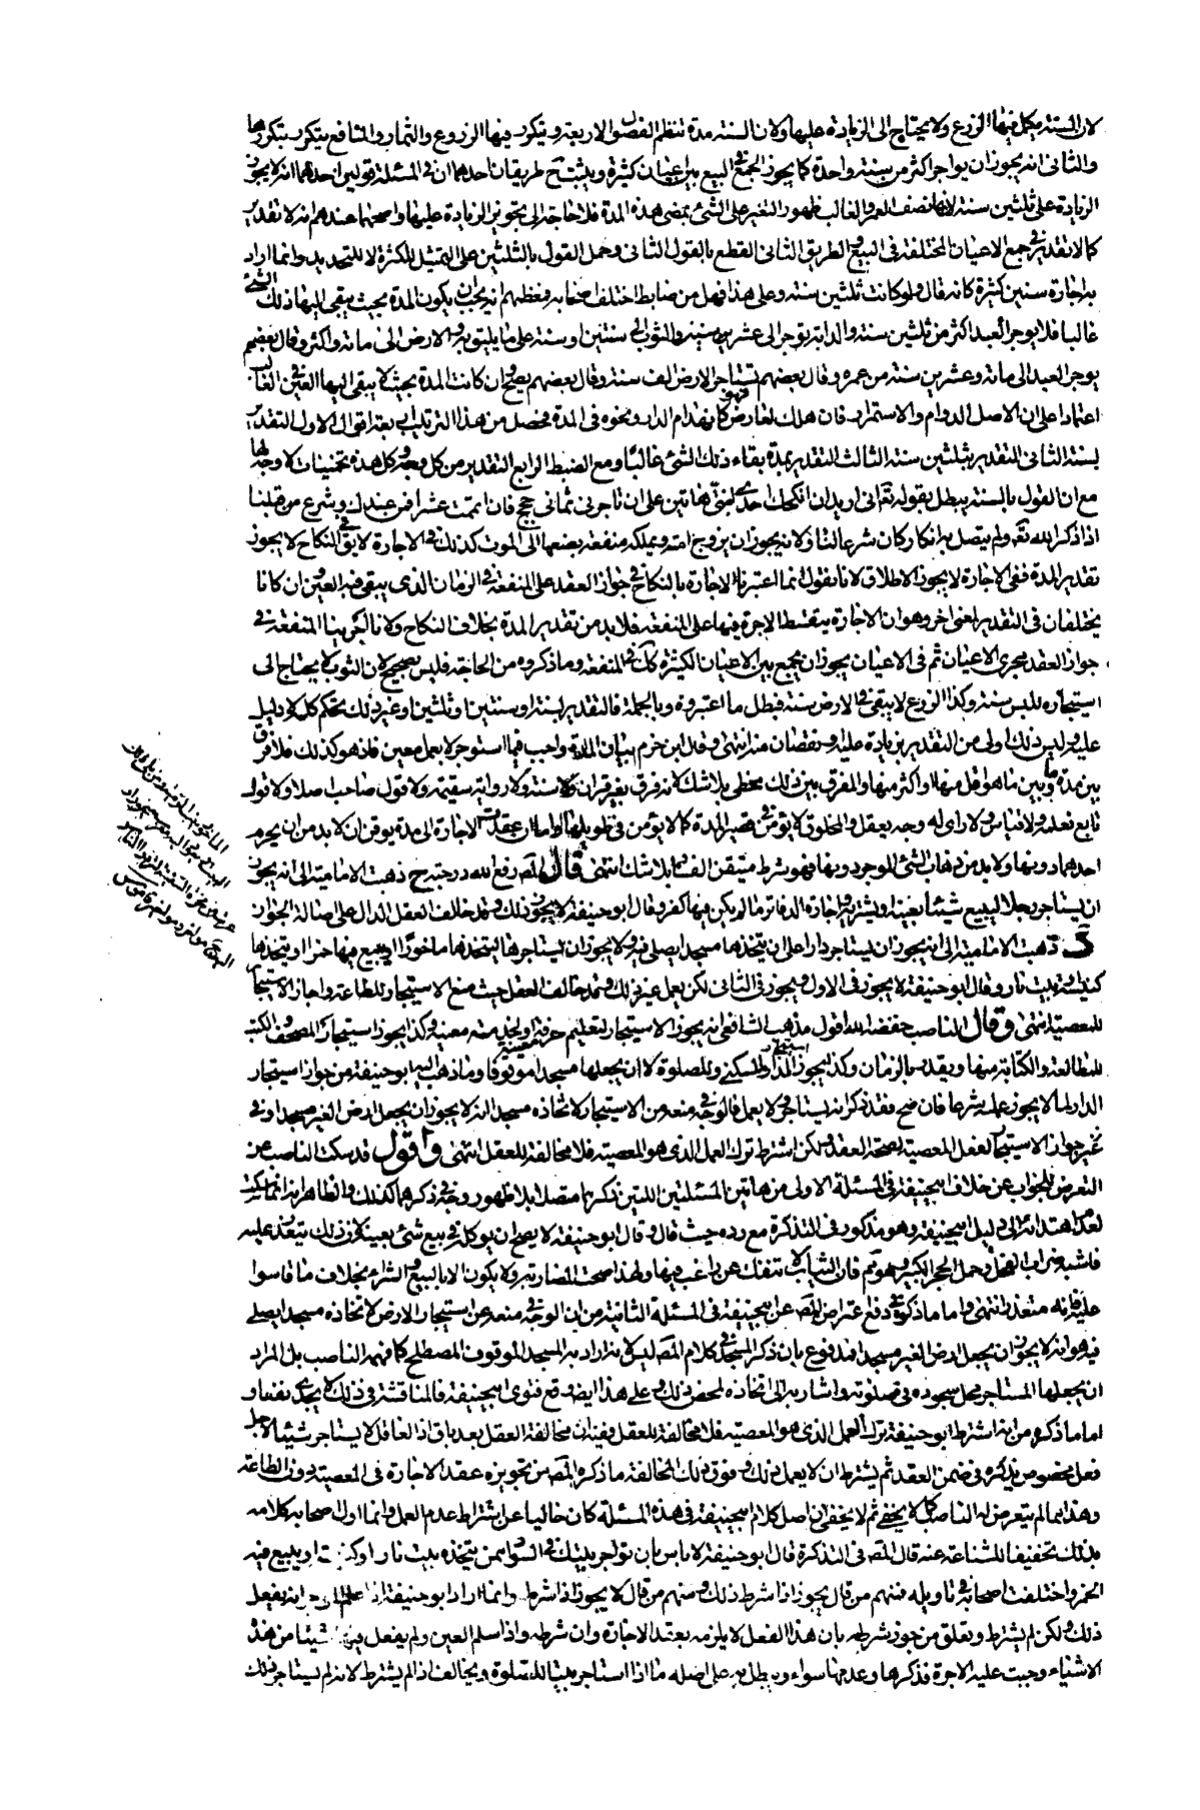 لان السنة يكمل فيها الزرع ولا يحتاج الى الزيادة عليها ولان السنة مدة تنظم الفصول الاربعة ويتكرر فيها الزروع والثمار والمنافع يتكرر بتكررها
والثانى انه يجوز ان يواجر اكثر من سنة واحدة كما يجوز الجمع فى البيع بين اعيان كثيرة وينشتح طريقان احدهما ان فى المسئلة قولين احدهما انه لا يجوز
الزيادة على ثلثين سنة لانها نصف العمر والغالب ظهور التغير على الشئ بمضى هذه المدة فلا حاجة الى تجويز الزيادة عليها واصحهما عندهم انه لا تقدير
كما لا تقدير فى جمع الاعيان المختلفة فى البيع والطريق الثانى القطع بالقول الثانى وحمل القول بالثلثين على التمثيل للكثرة لا للتحديد وانما اراد
به اجارة سنين كثيرة كانه قال ولو كانت ثلثين سنة وعلى هذا فهل من ضابط اختلف اصحابه فمعظمهم انه يجب ان يكون المدة بحيث يبقى اليها ذلك الشئ
غالبا فلا يوجر العبد اكثر من ثلثين سنة والدابة يوجر الى عشر سنين والثوب الى سنتين او سنة على ما يليق به والارض الى مائة واكثر وقال بعضهم
يوجر العبد الى مائة وعشرين سنة من عمره وقال بعضهم تستاجر الارض الف سنة وقال بعضهم يصح وان كانت المدة بحيث لا يبقى اليها العين فى الغالب
اعتمادا على ان الاصل الدوام والاستمرار فان هلك لعارض فهو كانهدام الدار ونحوه فى المدة فحصل من هذا الترتيب اربعة اقوال الاول التقدير
بسنة الثانى التقدير بثلثين سنة الثالث التقدير بمدة بقاء ذلك الشئ غالبا ومع الضبط الرابع التقدير من كل وجه وكل هذه تخمينات لا وجه لها
مع ان القول بالسنة يبطل بقوله تعالى انى اريد ان انكحك احدى ابنتى هاتين على ان تاجرنى ثمانى حجج فان اتممت عشرا فمن عندك وشرع من قبلنا
اذا ذكر الله تعالى ولم يتصل به انكار كان شرعا لنا ولانه يجوز ان يزوج امته ويملك منفعة بضعها الى الموت كذلك فى الاجارة لا يق فى النكاح لا يجوز
تقدير المدة ففى الاجارة لا يجوز الاطلاق لانا نقول انما اعتبرنا الاجارة بالنكاح فى جواز العقد على المنفعة فى الزمان الذى يبقى فيه العين وان كانا
يختلفان فى التقدير لمعنى اخر وهو ان الاجارة يتقسط الاجرة فيها على المنفعة فلا بد من تقدير المدة بخلاف النكاح ولانا اجرينا المنفعة فى
جواز العقد مجرى الاعيان ثم فى الاعيان يجوز ان يجمع بين الاعيان الكثيرة كك فى المنفعة وما ذكروه من الحاجة فليس بصحيح لان الثوب لا يحتاج الى
استيجاره للبس سنة وكذا الزرع لا يبقى فى الارض سنة فبطل ما اعتبروه وبالجملة فالتقدير بسنة او سنتين او ثلثين او غير ذلك تحكم كله لا دليل
عليه وليس ذلك اولى من التقدير بزيادة عليه ونقصان منه انتهى وقال ابن حزم بيان المدة واجب فيما استوجر لا لعمل معين فاذ هو كذلك فلا فرق
بين مدة ما وبين ما هو اقل منها او اكثر منها والمفرق بين ذلك مخطئ بلا شك لانه فرق بغير قران ولا سنة ولا رواية سقيمة ولا قول صاحب اصلا ولا قول
تابع نعلمه ولا قياس ولا راى له وجه يعقل والمخلوق لا يؤمن فى قصير المدة كما لا يؤمن فى طويلها واما ان عقدت الاجارة الى مدة يوقن ان لا بد من ان يخرم
احدهما دونها ولا بد من ذهاب الشئ الموجود دونها فهو شرط متيقن الفساد بلا شك انتهى قال المص رفع الله درجته ح ذهبت الامامية الى انه يجوز
ان يستاجر رجلا ليبيع شيئا بعينه او يشتريه واجارة الدفاتر ما لم يكن فيها كفر وقال ابو حنيفة لا يجوز ذلك وقد خالف العقل الدال على اصالة الجواز
ك ذهبت الامامية الى انه يجوز ان يستاجر دارا على ان يتخذها مسجدا يصلى فيه ولا يجوز ان يستاجرها ليتخذها ماخورا او يبيع فيها خمرا او يتخذها
كنيسة او بيت نار وقال ابو حنيفة لا يجوز فى الاول ويجوز فى الثانى لكن يعمل غير ذلك وقد خالف العقل حيث منع الاستيجار للطاعة واجاز الاستيجار
للمعصية انتهى وقال الناصب خفضه الله اقول مذهب الشافعى انه يجوز الاستيجار لتعليم حرفة او لخدمة معينة وكذا يجوز استيجار المصحف والكتب
للمطالعة والكتابة منها ويقدر بالزمان وكذا يجوز استيجار الدار للسكنى وللصلوة لا ان يجعلها مسجدا موقوفا وما ذهب اليه ابو حنيفة من جواز استيجار
الدار لما لا يجوز عمله شرعا فان صح فقد ذكر انه يستاجر ولا يعمل فالوجه فى منعه من الاستيجار لاتخاذه مسجدا انه لا يجوز ان يجعل ارض الغير مسجدا وفى
تجويز الاستيجار لفعل المعصية لصحة العقد ولكن اشترط ترك العمل الذى هو المعصية فلا مخالفة للعقل انتهى واقول قد سكت الناصب عن
التعرض للجواب عن خلاف ابيحنيفة فى المسئلة الاولى من هاتين المسئلتين اللتين ذكرتا متصلا بلا ظهور وجه فى ذكرهما كذلك والظاهر انه انما سكت
لعدم اهتدائه الى دليل ابيحنيفة وهو مذكور فى التذكرة مع رده حيث قال وقال ابو حنيفة لا يصح ان يوكله فى بيع شئ بعينه لان ذلك يتعذر عليه
فاشبه ضراب الفحل وحمل الحجر الكبير وهو مم فان الثياب لا تنفك عن راغب فيها ولهذا صحت المضاربة ولا يكون الا بالبيع والشراء بخلاف ما قاسوا
عليه فانه متعذر انتهى واما ما ذكره فى دفع اعتراض المص عن ابيحنيفة فى المسئلة الثانية من ان الوجه فى منعه عن استيجار الارض لاتخاذه مسجدا يصلى
فيه هو انه لا يجوز ان يجعل ارض الغير مسجدا فمدفوع بان ذكر المسجد فى كلام المص ليس لانه اراد به المسجد الموقوف المصطلح كما فهمه الناصب بل المراد
ان يجعلها المستاجر محل سجوده فى صلوته واشار به الى اتخاذه لمحض ذلك وعلى هذا ايضا وقع فتوى ابيحنيفة فالمناقشة فى ذلك لا يجدى نفعا و
اما ما ذكره من انه اشترط ابو حنيفة ترك العمل الذى هو المعصية فلا مخالفة للعقل ففيه ان مخالفة العقل بعد باق اذ العاقل لا يستاجر شيئا لاجل
فعل مخصوص يذكره فى ضمن العقد ثم يشترط ان لا يعمل ذلك وفوق ذلك المخالفة ما ذكره المص من تجويزه عقد الاجارة فى المعصية دون الطاعة
وهذا مما لم يتعرض له الناصب كما لا يخفى ثم لا يخفى ان اصل كلام ابيحنيفة فى هذه المسئلة كان خاليا عن اشتراط عدم العمل وانما اول اصحابه كلامه
بذلك تخفيفا للشناعة عنه قال المص فى التذكرة قال ابو حنيفة لا باس بان تواجر بيتك فى السواد ممن يتخذه بيت نار او كنيسة او يبيع فيه
الخمر واختلفت اصحابه فى تاويله فمنهم من قال يجوز اذا شرط ذلك ومنهم من قال لا يجوز اذا شرط وانما اراد ابو حنيفة اذا علم الموجر انه يفعل
ذلك ولكن لم يشترط ويعلق من جوز شرطه بان هذا الفعل لا يلزمه بعقد الاجارة وان شرطه واذا سلم العين ولم يفعل فيه شيئا من هذه
الاشياء وجبت عليه الاجرة فذكرها وعدمها سواء ويبطل به على اصله ما اذا استاجر بيتا للصلوة ويخالف اذا لم يشترط لانه لم يستاجر ذلك